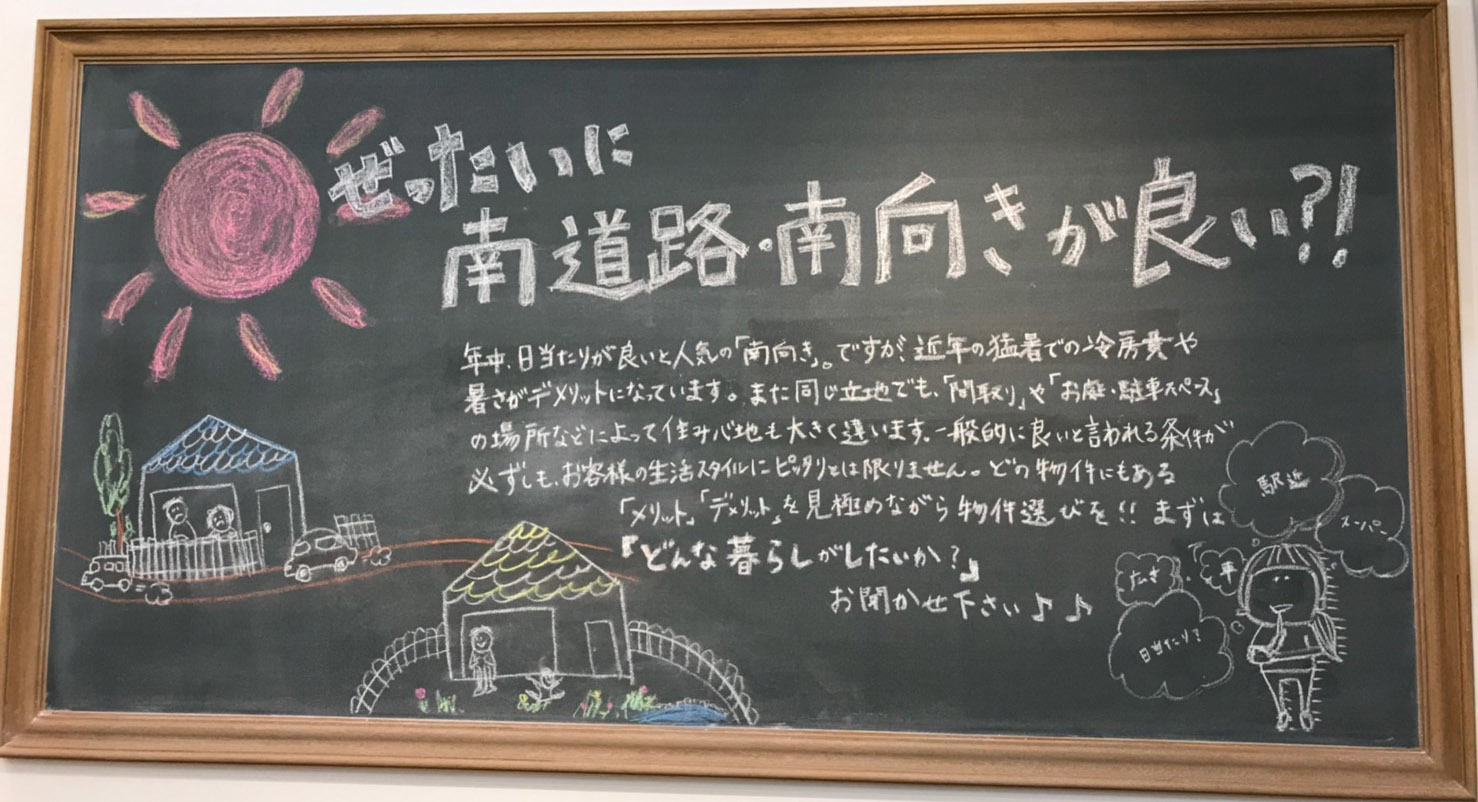 ぜったいに
南道路・南向きが良い?!
年中、日当たりが良いと人気の「南向き」。ですが、近年の猛暑での冷房費や
暑さがデメリットになっています。また同じ立地でも、「間取り」や「お庭・駐車スペース」
の場所などによって住み心地も大きく違います。一般的に良いと言われる条件が
必ずしも、お客様の生活スタイルにピッタリとは限りません。どの物件にもある
「メリット」「デメリット」を見極めながら物件選びを!! まずは
『どんな暮らしがしたいか?』
お聞かせ下さい♪♪
駅近
スーパー
広さ
車
日当たり?